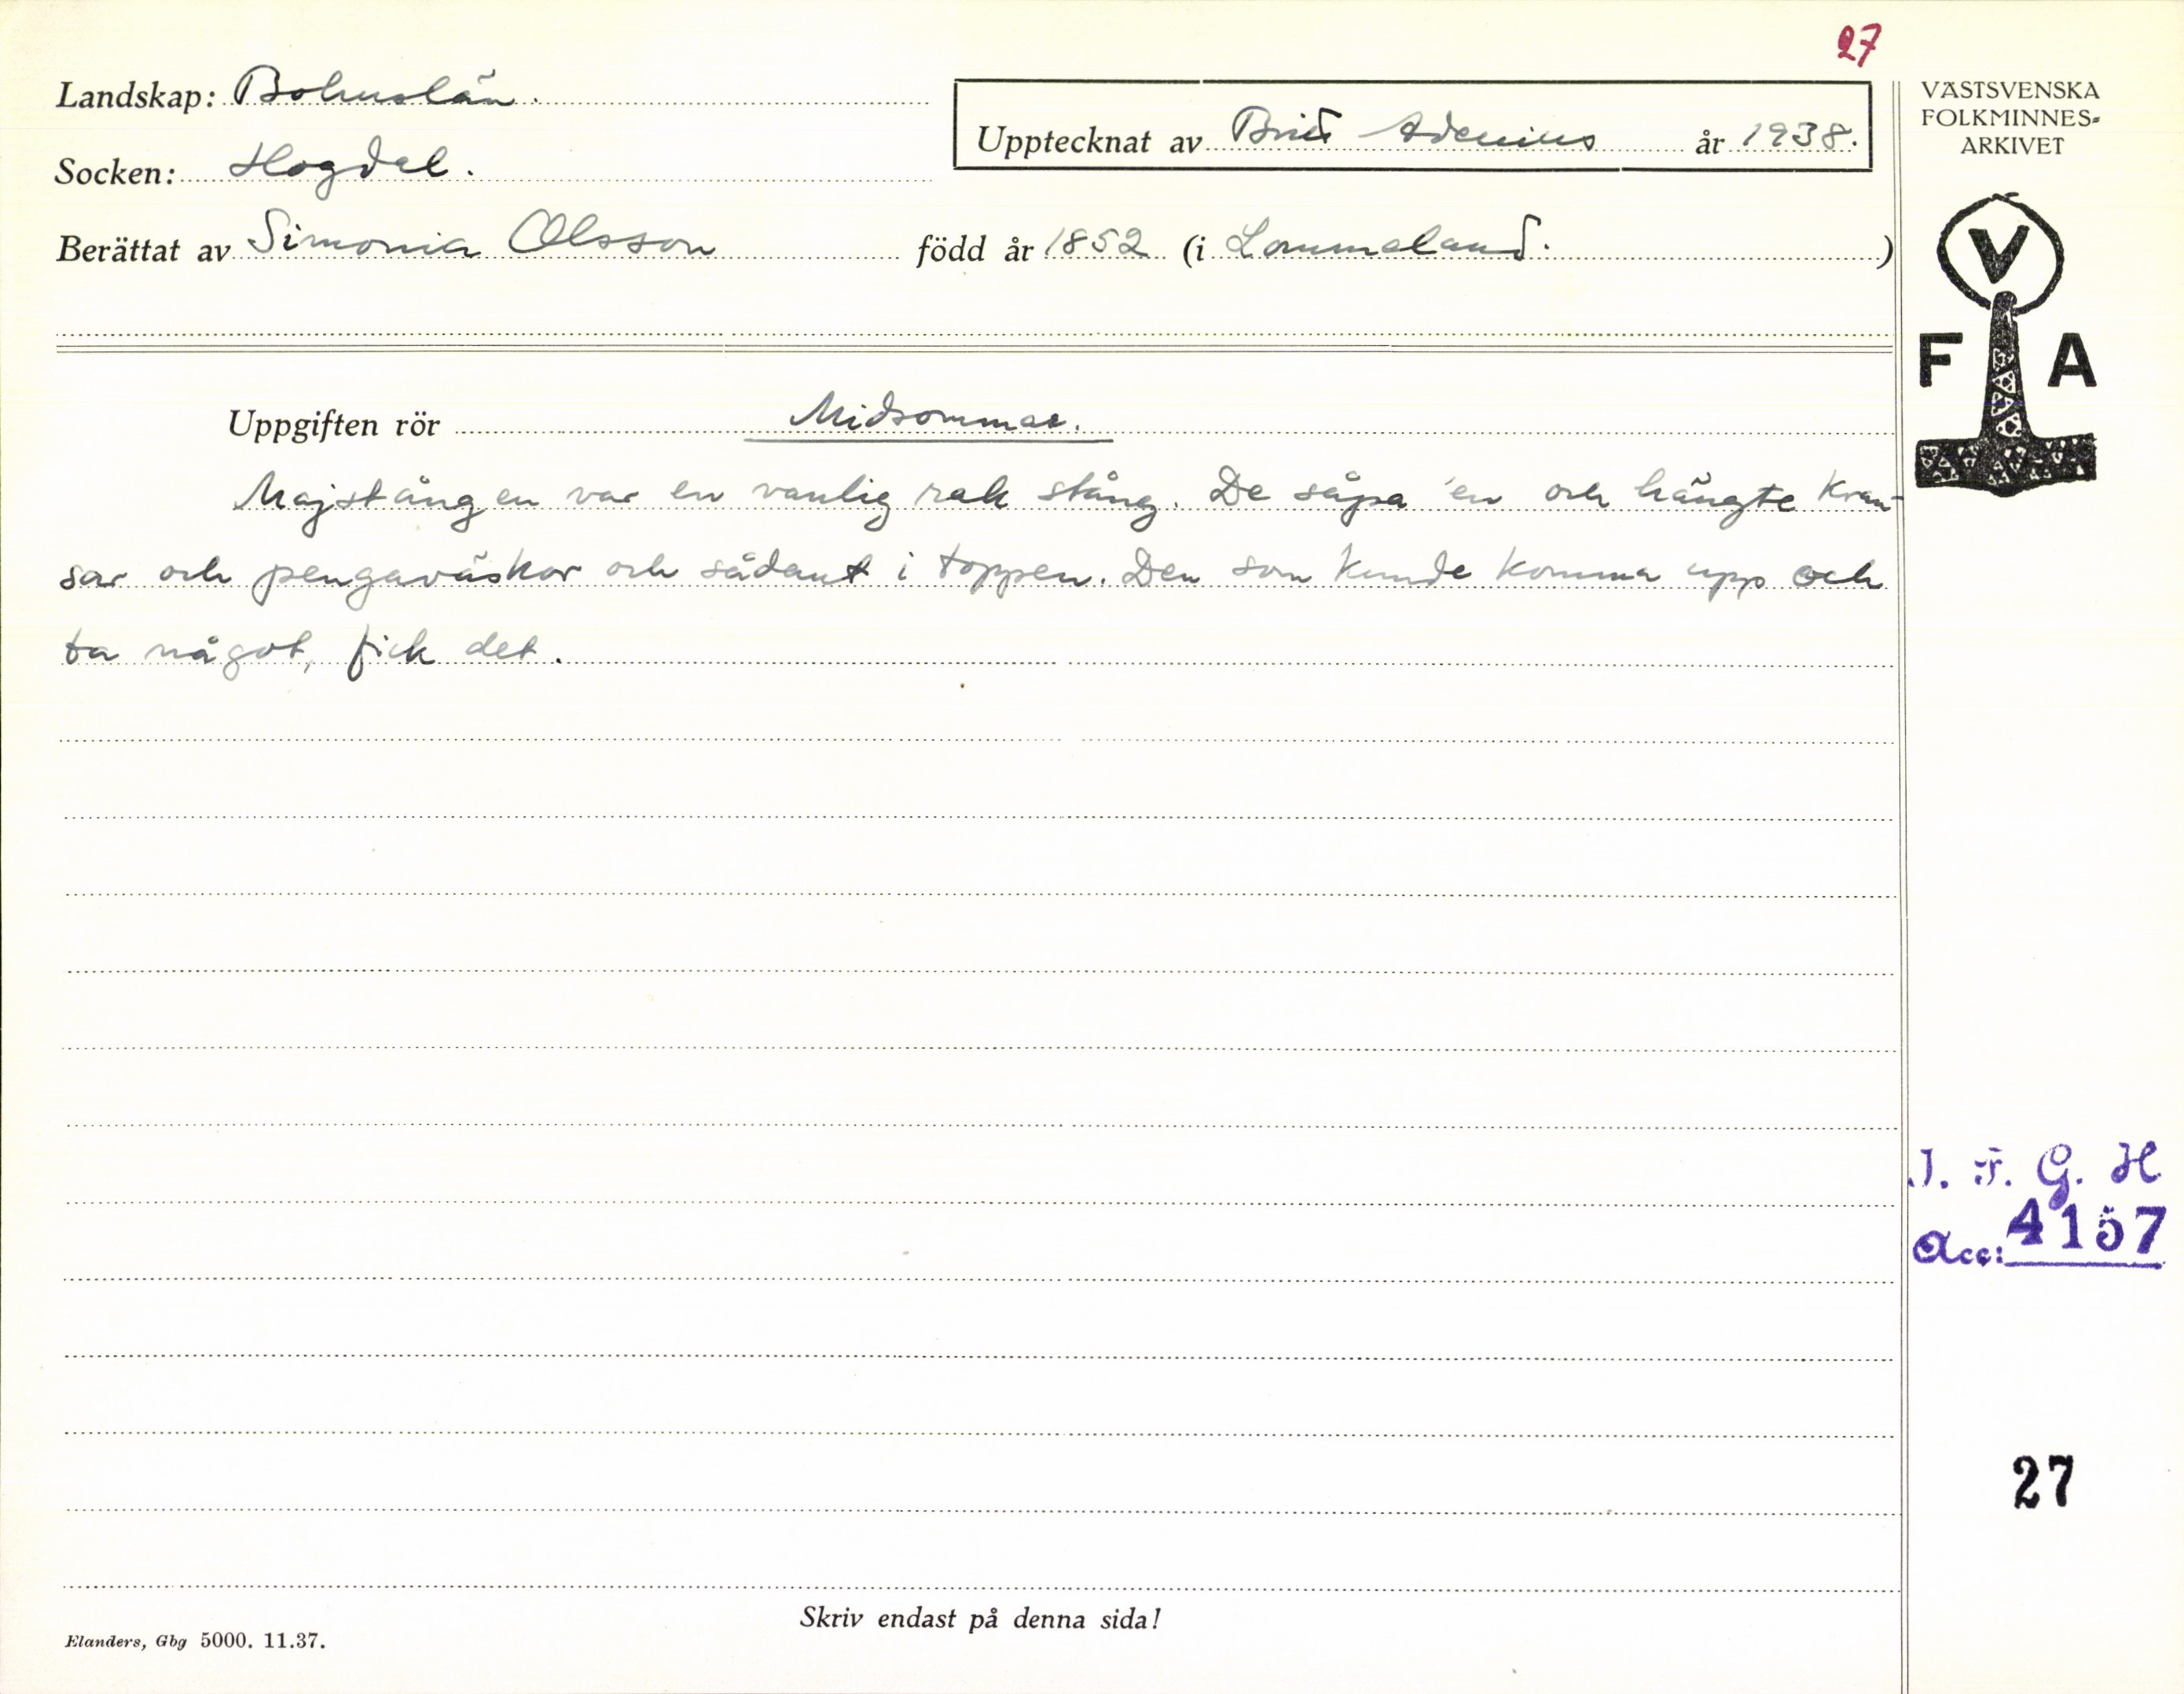 27
Landskap: Bohuslän.
Socken: Hogdal.
Upptecknat av Britt Adenius år 1938.
Berättat av Simonia Olsson född år 1852 (i Lommeland.)
VÄSTSVENSKA
FOLKMINNES-
ARKIVET
V
F A
Uppgiften rör Midsommar.
Majstången var en vanlig rak stång. De såpa 'en och hängte kran-
sar och pengaväskor och sådant i toppen. Den som kunde komma upp och
ta något, fick det.
I. F. G. H
Acc: 4157
27
Skriv endast på denna sida!
Elanders, Gbg 5000. 11.37.